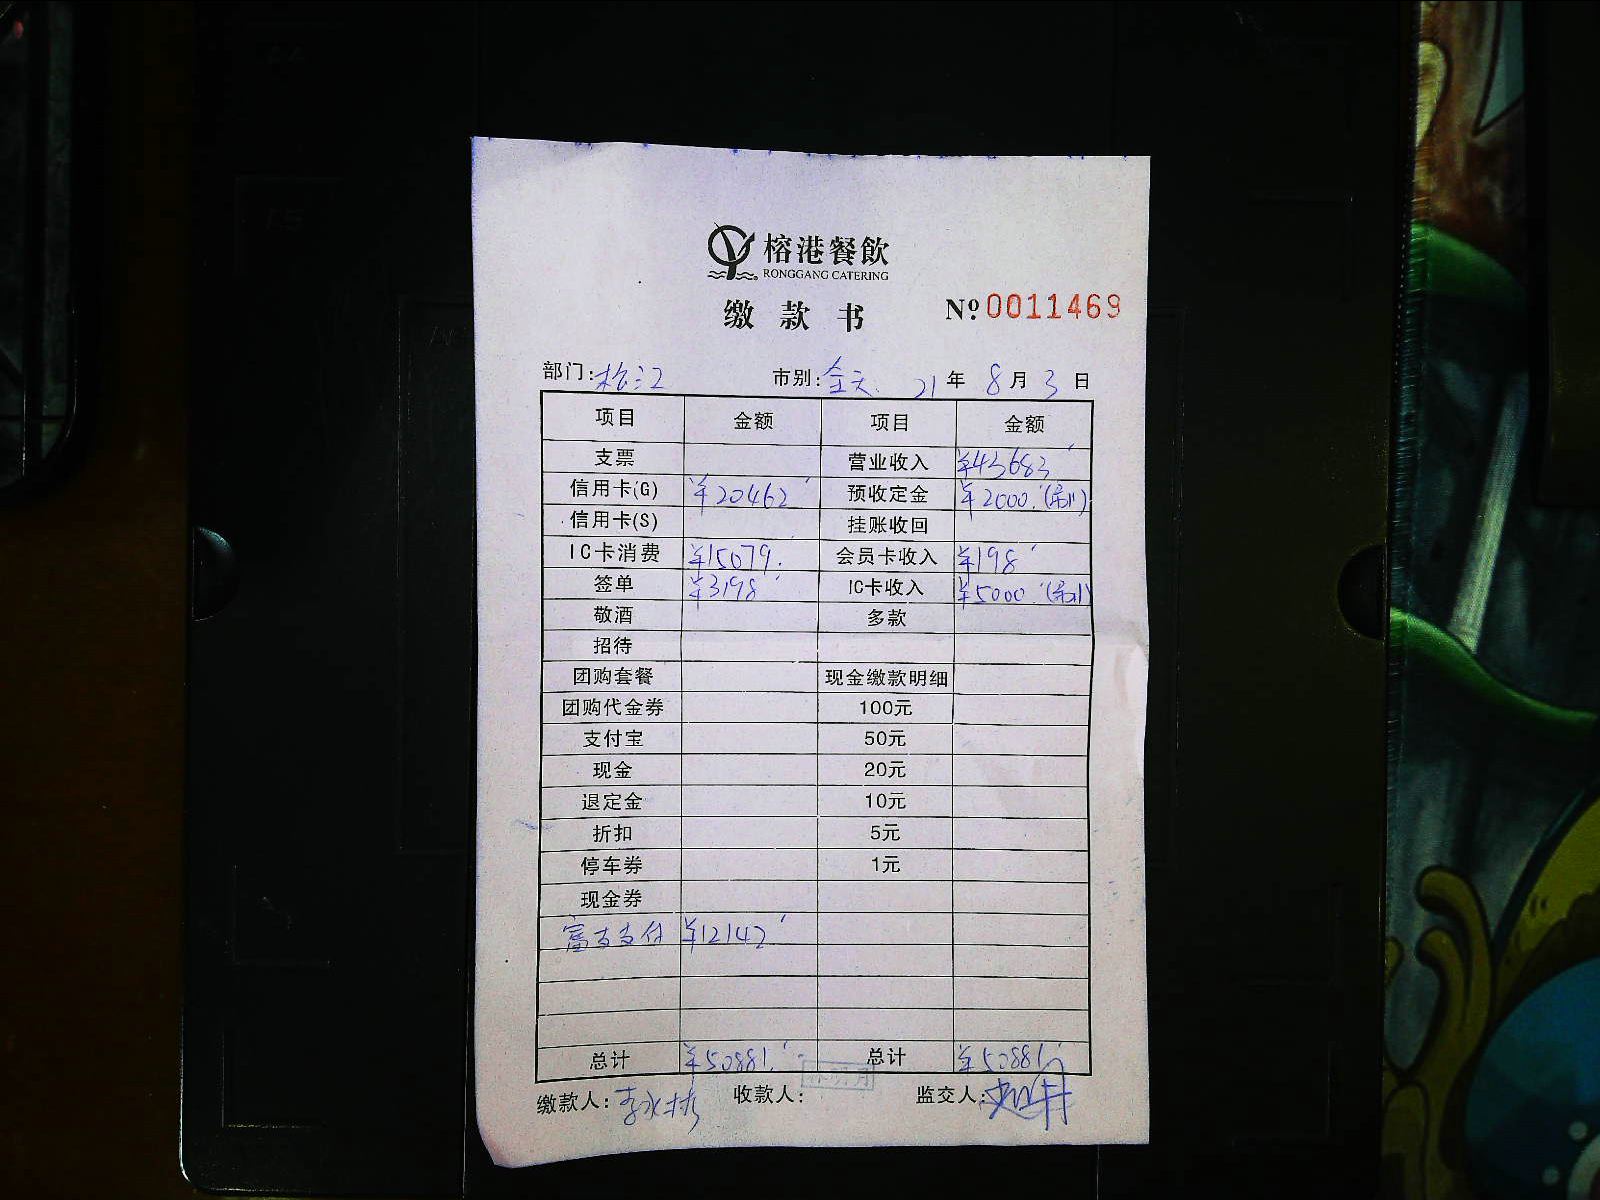 榕港餐飲
RONGGANG CATERING
缴款书 №0011469
部门:松江 市别:全天 21年8月3日
项目 金额 项目 金额
支票 营业收入 ¥43683
信用卡(G) ¥20462 预收定金 ¥2000 (刷)
信用卡(S) 挂账收回
IC卡消费 ¥15079 会员卡收入 ¥198
签单 ¥3198 IC卡收入 ¥5000 (刷)
敬酒 多款
招待
团购套餐 现金缴款明细
团购代金券 100元
支付宝 50元
现金 20元
退定金 10元
折扣 5元
停车券 1元
现金券
富友支付 ¥12142
总计 ¥50881 总计 ¥50881
缴款人: 收款人: 监交人: